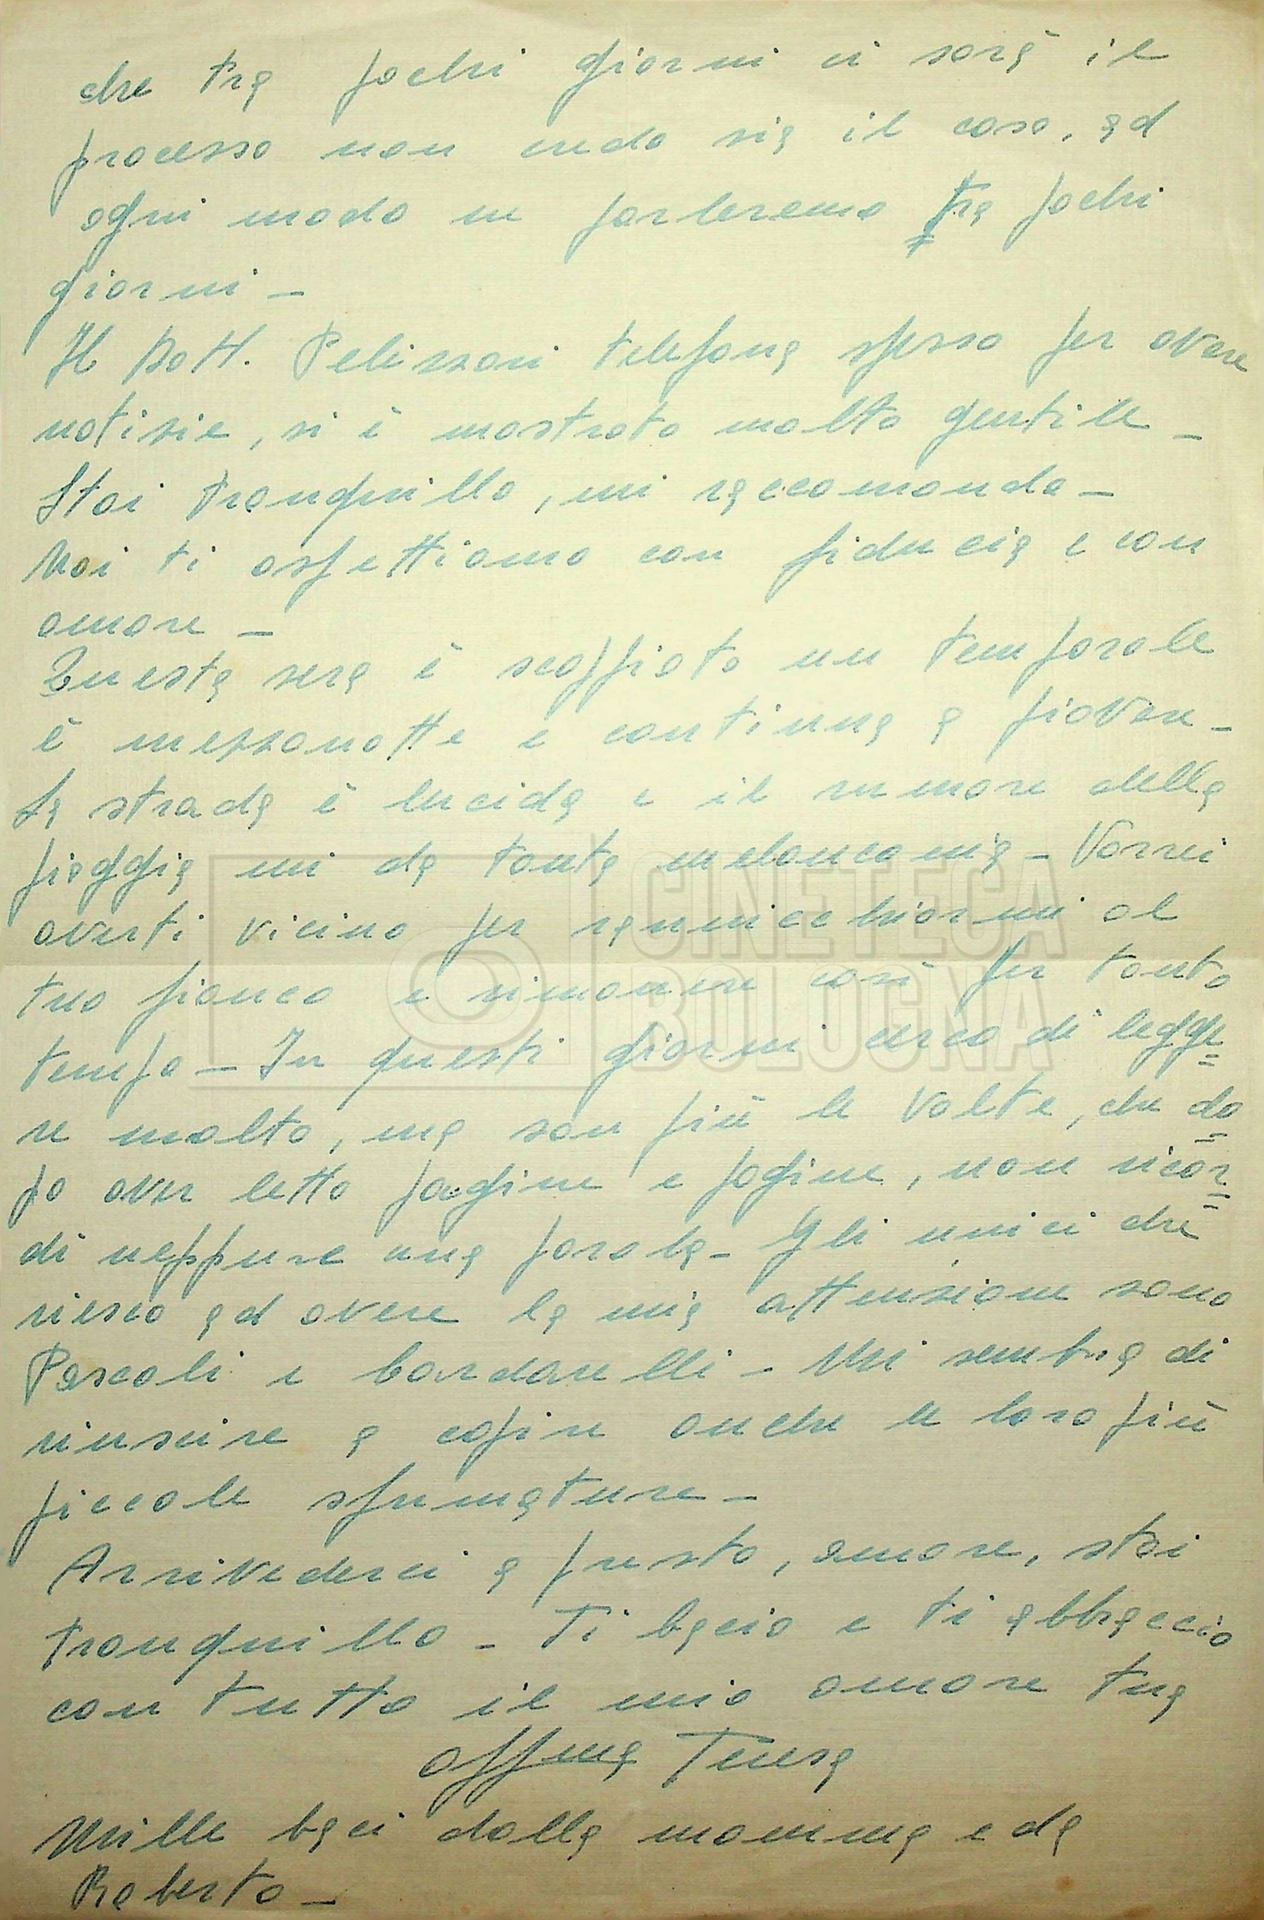 che tra pochi giorni ci sarà il
processo non credo sia il caso, ad
ogni modo ne parleremo tra pochi
giorni –
Il Dott. Pelizzari telefona spesso per avere
notizie, si è mostrato molto gentile –
Stai tranquillo, mi raccomando –
Noi ti aspettiamo con fiducia e con
amore –
Questa sera è scoppiato un temporale
è mezzanotte e continua a piovere –
La strada è lucida e il rumore della
pioggia mi da tanta melanconia – Vorrei
averti vicino per rannicchiarmi al
tuo fianco e rimanere così per tanto
tempo – In questi giorni cerco di legge=
re molto, ma son più le volte, che do=
po aver letto pagine e pagine, non ricor=
di neppure una parola – Gli unici che
riesco ad avere la mia attenzione sono
Pascoli e Cardarelli – Mi sembra di
riuscire a capire anche le loro più
piccole sfumature –
Arrivederci a presto, amore, stai
tranquillo – Ti bacio e ti abbraccio
con tutto il mio amore tua
aff.ma Teresa
Mille baci dalla mamma e da
Roberto –
CINETECA
BOLOGNA